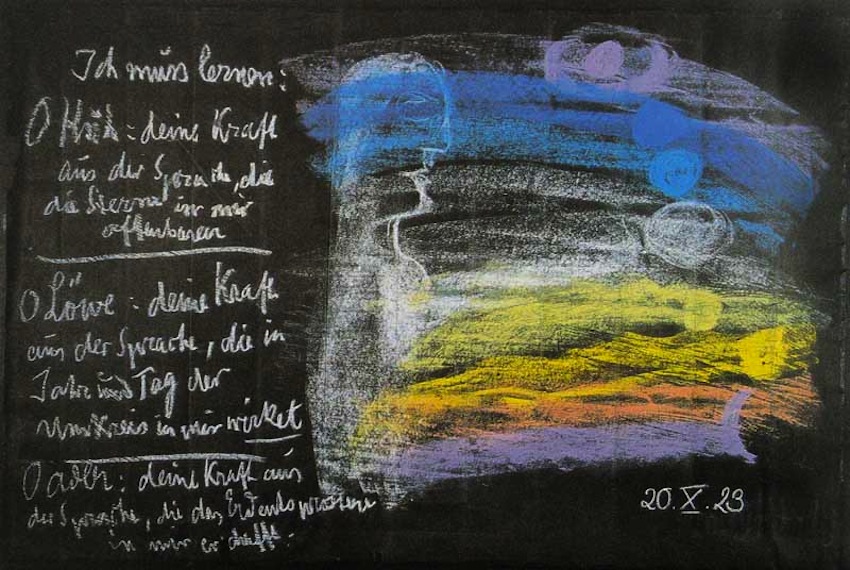 Ich muss lernen:
O : deine Kraft
aus der Sprache, die
die Sterne in mir
offenbaren
O Löwe: deine Kraft
aus der Sprache, die in
Jahr und Tag der
Umkreis in mir wirket
O adler: deine Kraft aus
der Sprache, die das Erdentsprossene
in mir erschafft.
20.X.23